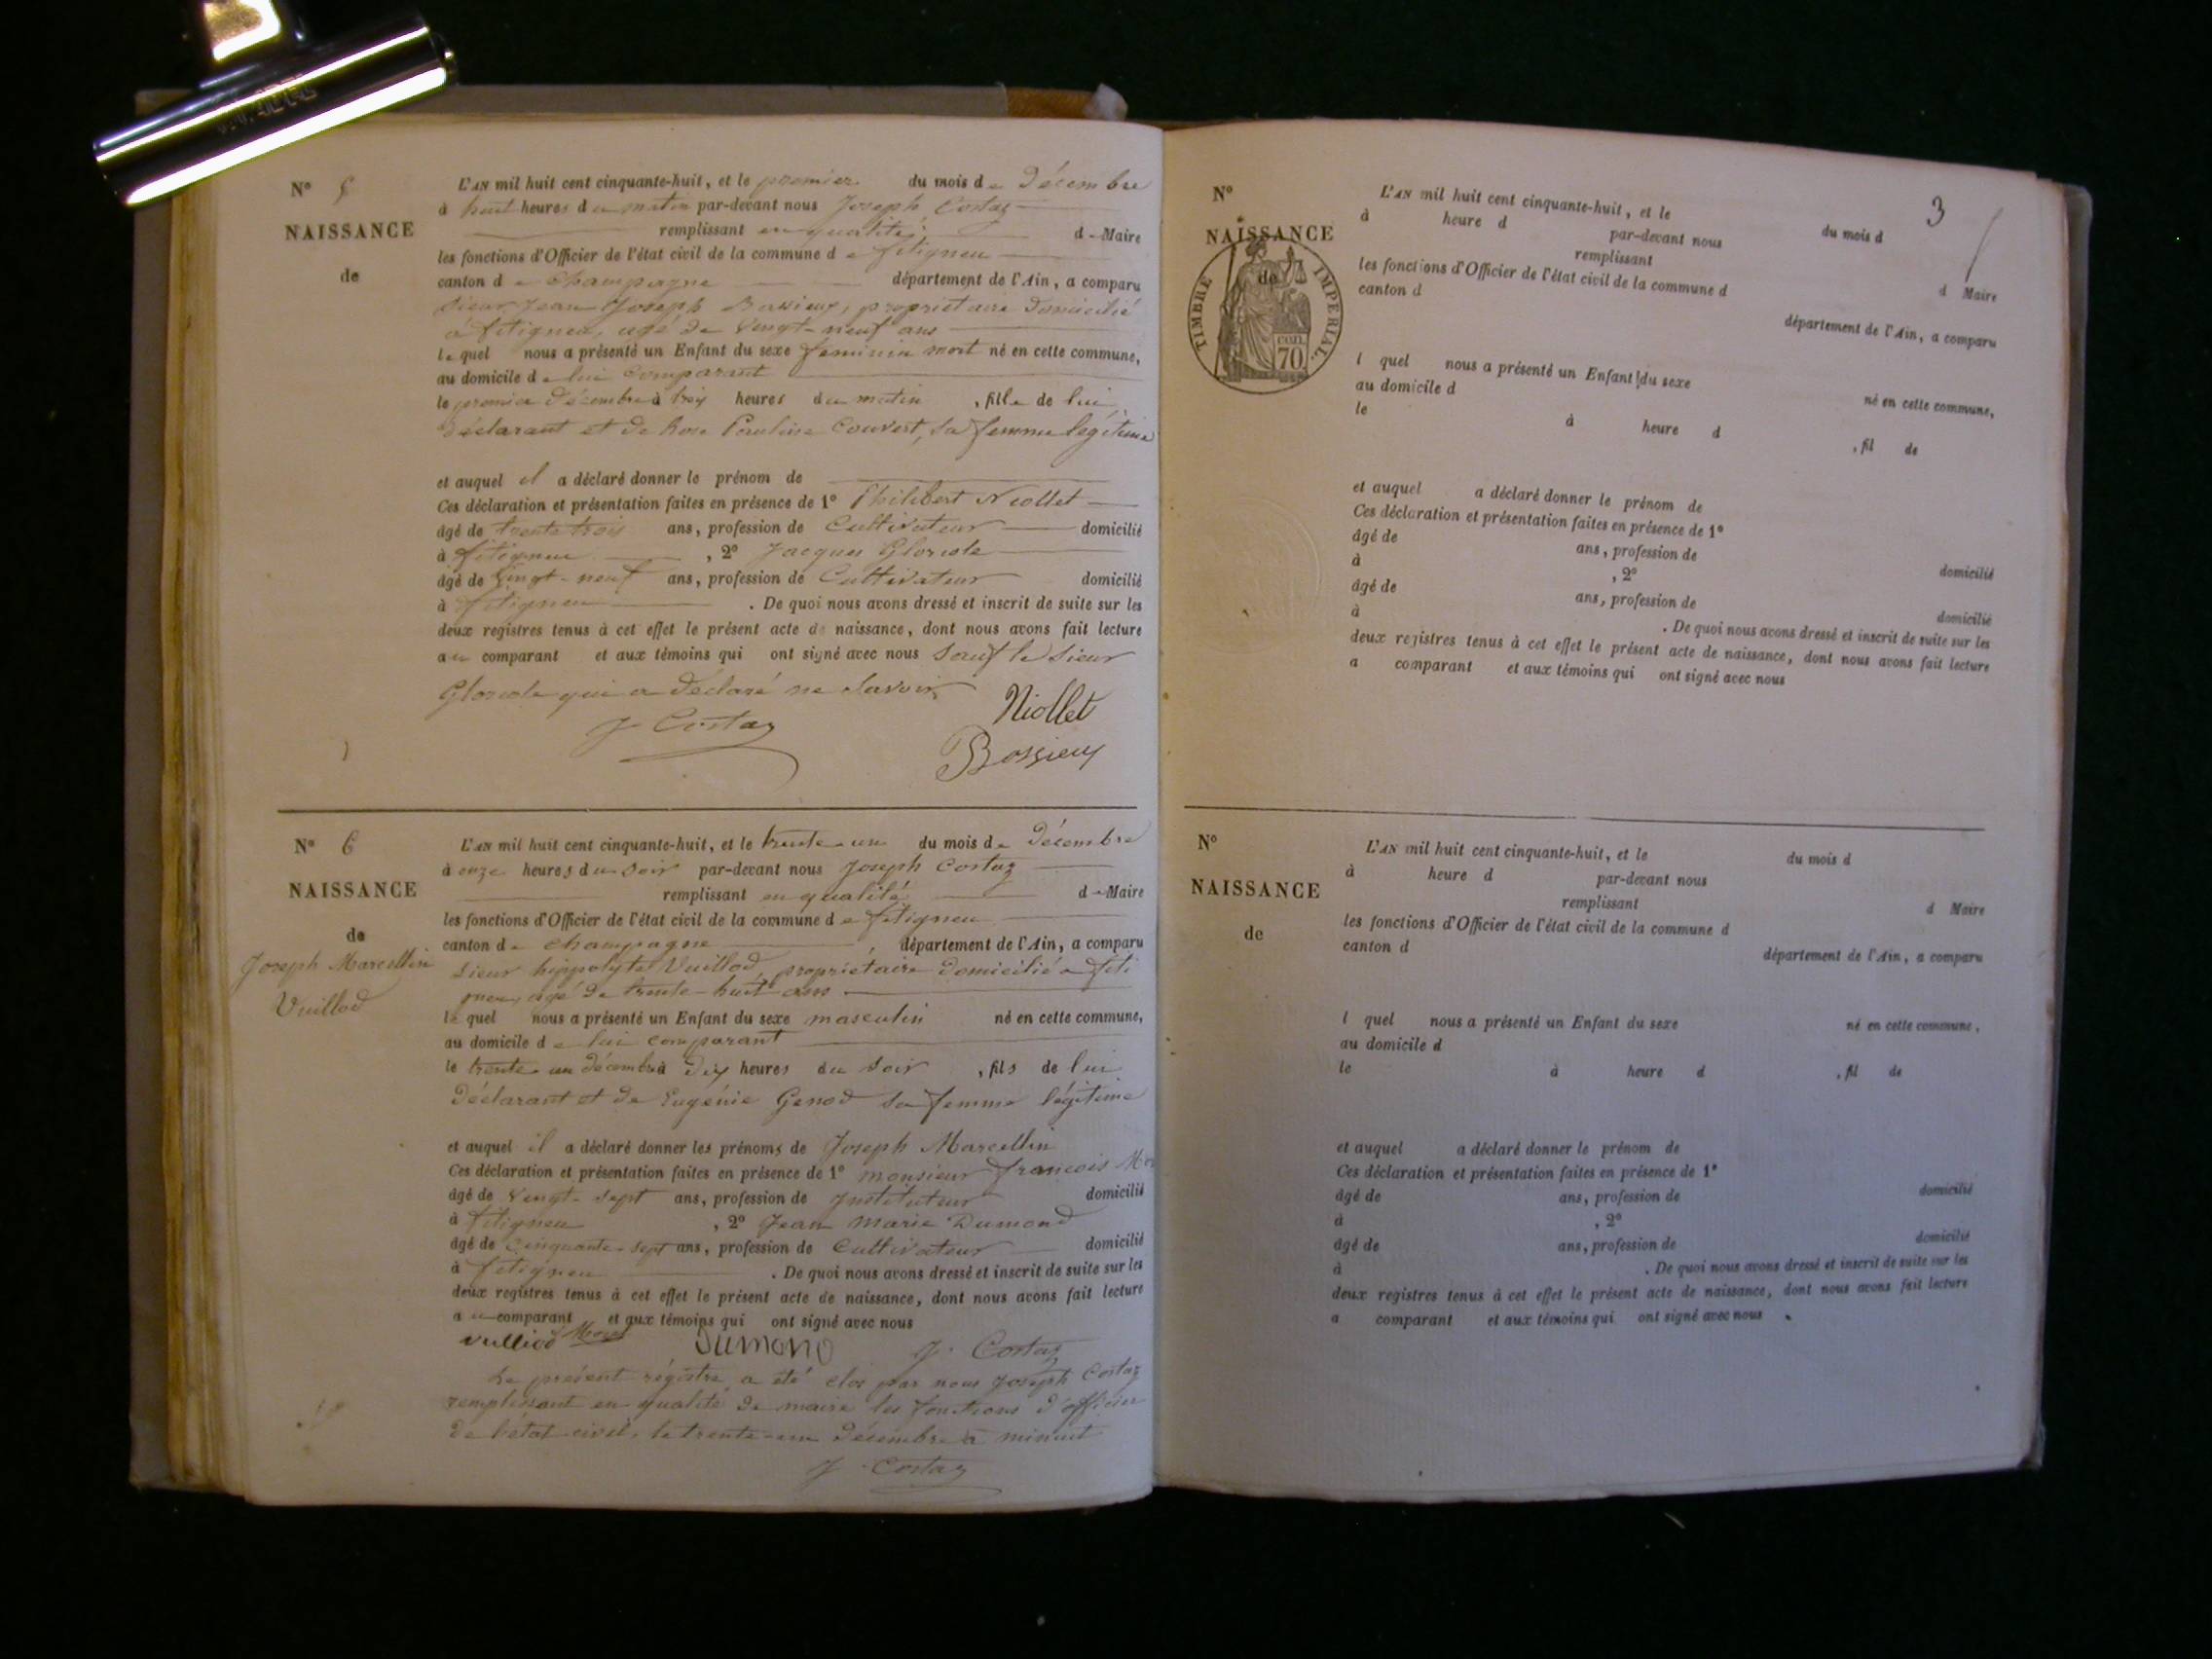 N° 5
NAISSANCE
de
L'AN mil huit cent cinquante-huit, et le premier du mois de Décembre
à huit heures du matin par-devant nous Joseph Costaz
remplissant en qualité de Maire
les fonctions d'Officier de l'état civil de la commune de fitigneu
canton de Champagne département de l'Ain, a comparu
Sieur Jean Joseph propriétaire domicilié
à fitigneu, agé de vingt-neuf ans
lequel nous a présenté un Enfant du sexe feminin mort né en cette commune,
au domicile de lui comparant
le premier décembre à trois heures du matin, fille de lui
déclarant et de Rose Pauline Couvert, sa femme légitime
et auquel il a déclaré donner le prénom de
Ces déclaration et présentation faites en présence de 1° Philibert Niollet
âgé de trente trois ans, profession de Cultivateur domicilié
à fitigneu, 2° Jacques Gloriode
âgé de vingt-neuf ans, profession de Cultivateur domicilié
à fitigneu. De quoi nous avons dressé et inscrit de suite sur les
deux registres tenus à cet effet le présent acte de naissance, dont nous avons fait lecture
au comparant et aux témoins qui ont signé avec nous sauf le Sieur
Gloriode qui a déclaré ne savoir
J Costaz
Niollet
Bossieux
N° 6
NAISSANCE
de
Joseph Marcellin
Vuillod
L'AN mil huit cent cinquante-huit, et le trente-un du mois de Décembre
à onze heures du soir par-devant nous Joseph Costaz
remplissant en qualité de Maire
les fonctions d'Officier de l'état civil de la commune de fitigneu
canton de Champagne, département de l'Ain, a comparu
Sieur hippolyte Vuillod, propriétaire domicilié a fiti
gneu, agé de trente-huit ans
lequel nous a présenté un Enfant du sexe masculin né en cette commune,
au domicile de lui comparant
le trente-un décembre à dix heures du soir, fils de lui
déclarant et de Eugénie Genod sa femme légitime
et auquel il a déclaré donner les prénoms de Joseph Marcellin
Ces déclaration et présentation faites en présence de 1° monsieur francois
âgé de vingt-sept ans, profession de Instituteur domicilié
à fitigneu, 2° Jean Marie Dumond
âgé de cinquante-sept ans, profession de Cultivateur domicilié
à fitigneu. De quoi nous avons dressé et inscrit de suite sur les
deux registres tenus à cet effet le présent acte de naissance, dont nous avons fait lecture
au comparant et aux témoins qui ont signé avec nous
Vulliod Dumond J. Costaz
Le présent régistre a été clos par nous Joseph Costaz
remplissant en qualité de maire les fonctions d'officier
de l'état civil, le trente-un décembre à minuit
J. Costaz
3
N°
NAISSANCE
de
TIMBRE IMPERIAL
70
L'AN mil huit cent cinquante-huit, et le du mois d
à heure d par-devant nous
remplissant d Maire
les fonctions d'Officier de l'état civil de la commune d
canton d département de l'Ain, a comparu
l quel nous a présenté un Enfant du sexe né en cette commune,
au domicile d
le à heure d, fil de
et auquel a déclaré donner le prénom de
Ces déclaration et présentation faites en présence de 1°
âgé de ans, profession de domicilié
à, 2°
âgé de ans, profession de domicilié
à. De quoi nous avons dressé et inscrit de suite sur les
deux registres tenus à cet effet le présent acte de naissance, dont nous avons fait lecture
a comparant et aux témoins qui ont signé avec nous
N°
NAISSANCE
de
L'AN mil huit cent cinquante-huit, et le du mois d
à heure d par-devant nous
remplissant d Maire
les fonctions d'Officier de l'état civil de la commune d
canton d département de l'Ain, a comparu
l quel nous a présenté un Enfant du sexe né en cette commune,
au domicile d
le à heure d, fil de
et auquel a déclaré donner le prénom de
Ces déclaration et présentation faites en présence de 1°
âgé de ans, profession de domicilié
à, 2°
âgé de ans, profession de domicilié
à. De quoi nous avons dressé et inscrit de suite sur les
deux registres tenus à cet effet le présent acte de naissance, dont nous avons fait lecture
a comparant et aux témoins qui ont signé avec nous